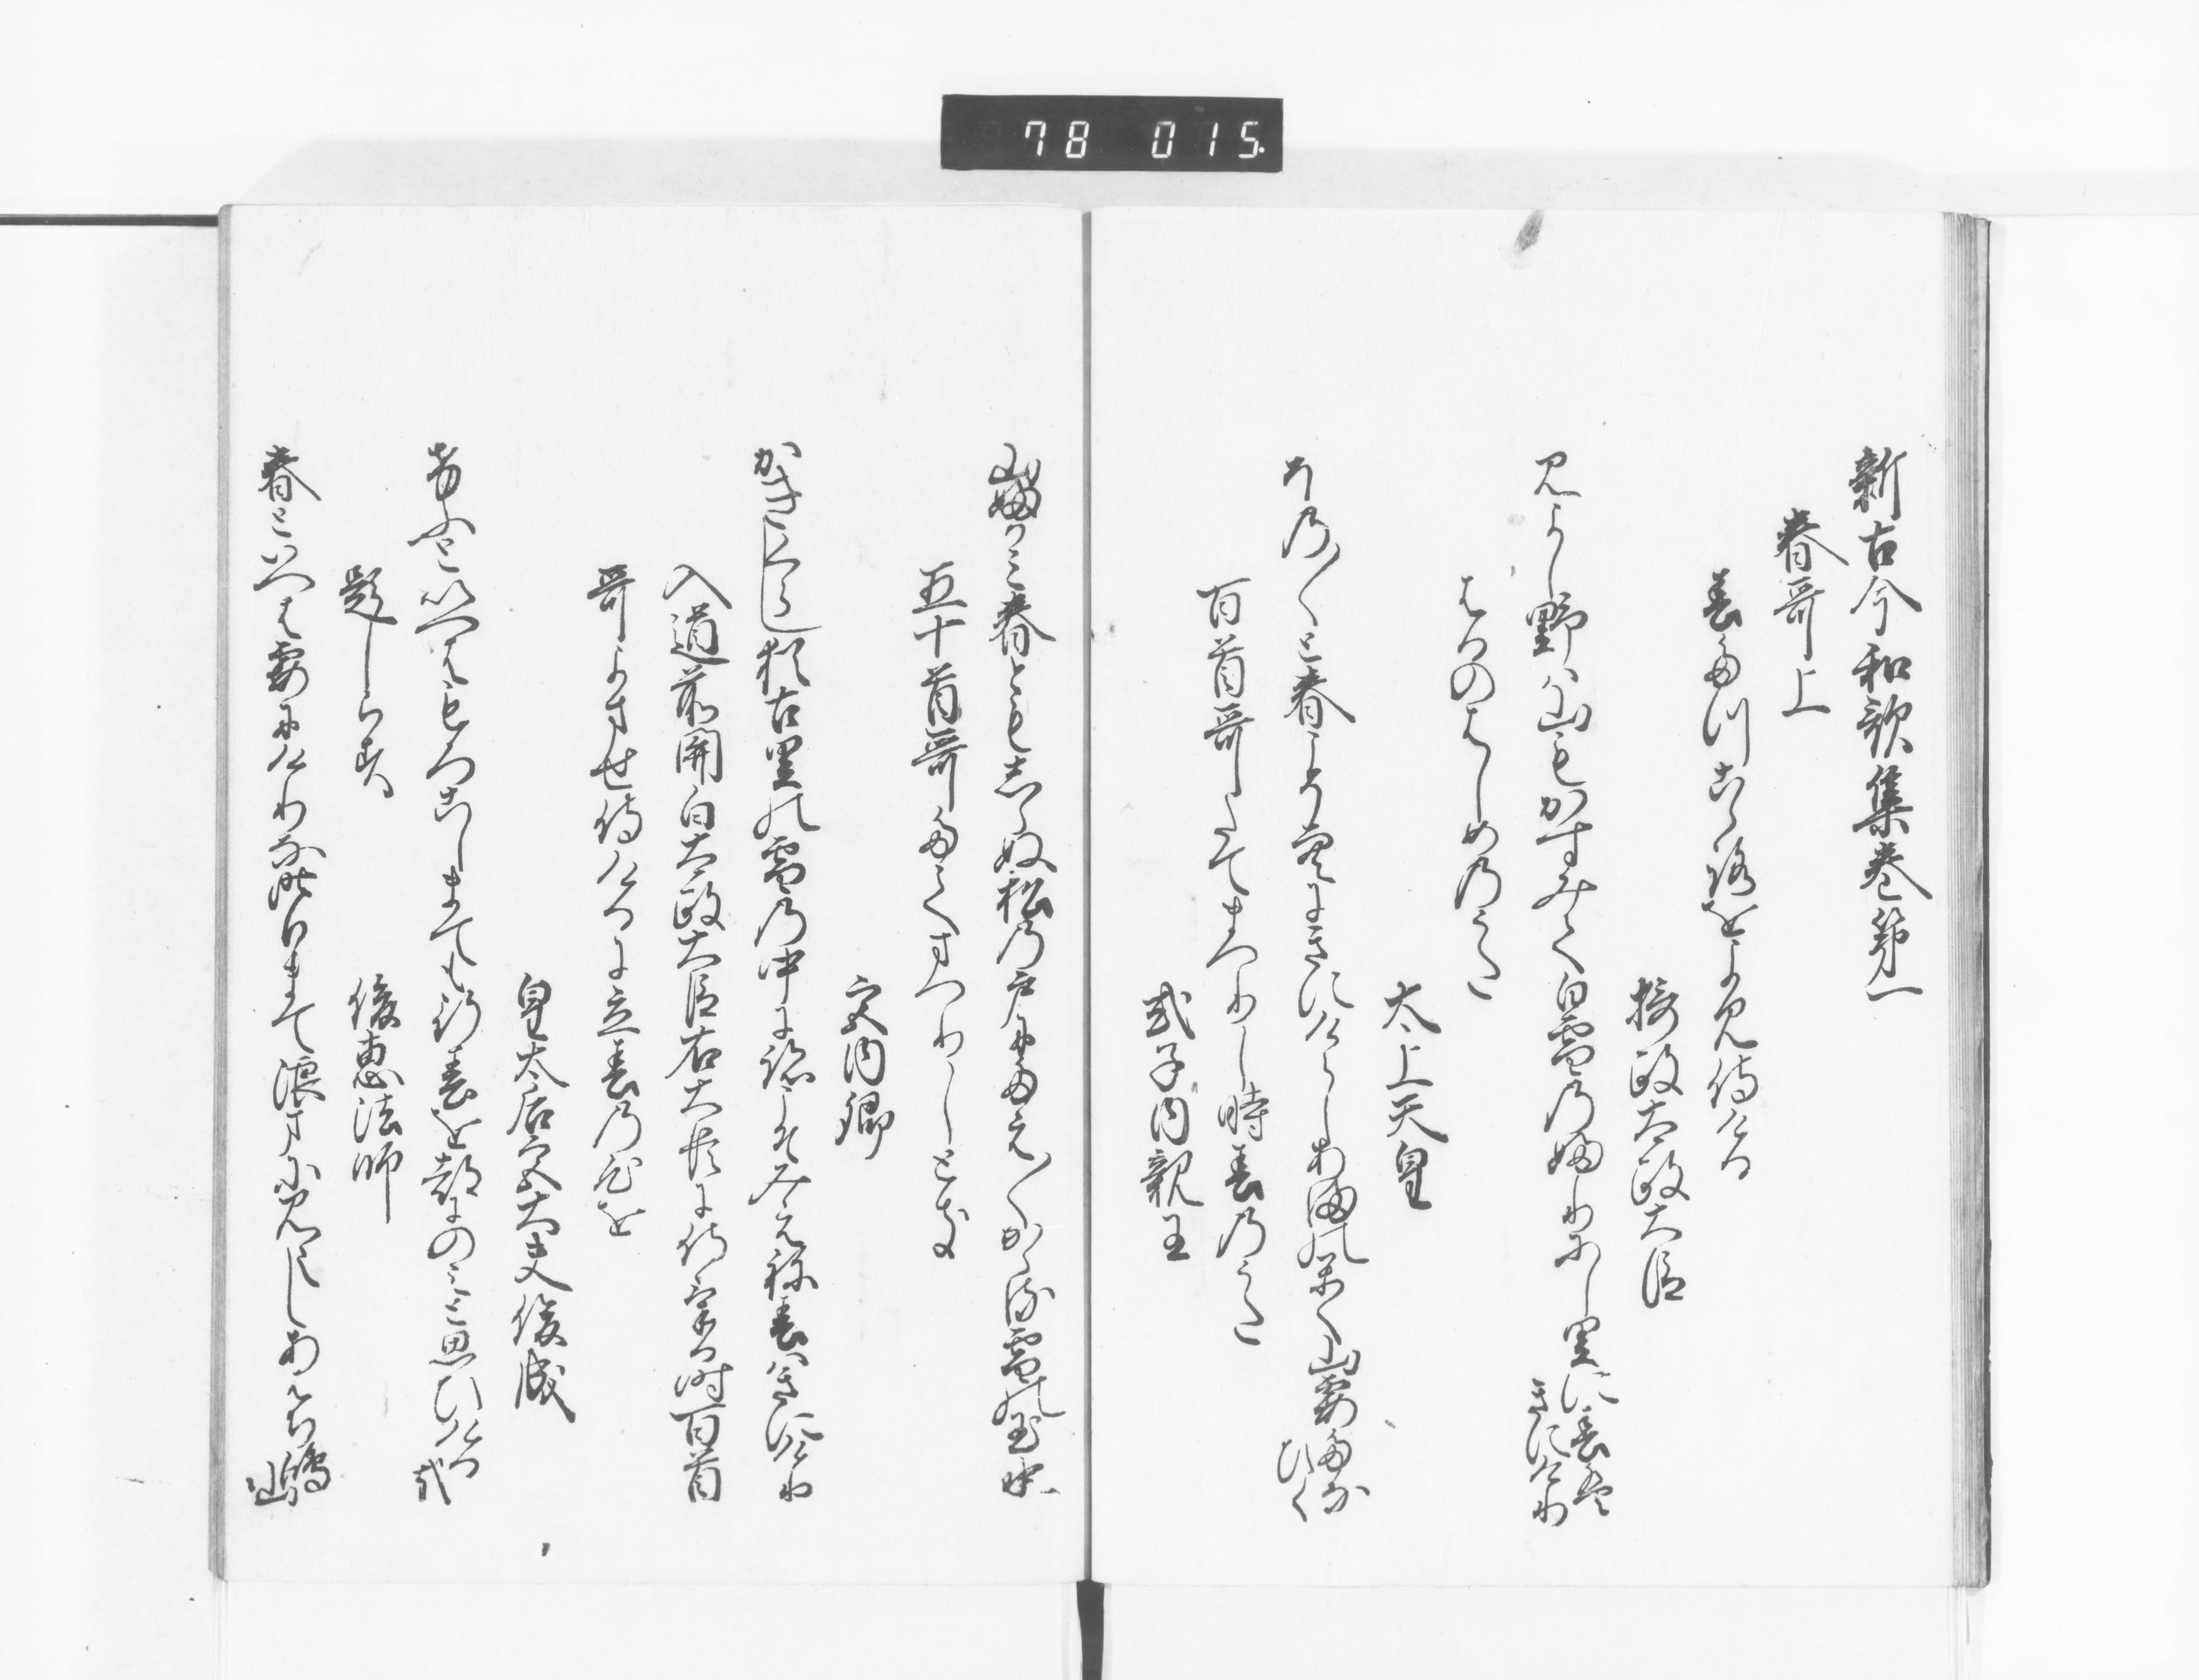 78 015
新古今和歌集巻第一
春哥上
春たつこゝろをよみ侍ける
摂政太政大臣
みよし野は山もかすみて白雪のふりにし里に春は
きにけり
はるのはしめのうた
太上天皇
ほの〱と春こそ空にきにけらしあまのかく山霞たな
ひく
百首哥たてまつりし時春のうた
式子内親王
山ふかみ春ともしらぬ松の戸にたえ〱かゝる雪の玉水
五十首哥たてまつりしとき
宮内卿
かきくらし猶古里の雪の中に跡こそみえね春はきにけり
入道前関白太政大臣右大臣に侍ける時百首
哥よませ侍けるに立春の心を
皇太后宮大夫俊成
けふといへはもろこしまても行春を都にのみと思ひける
哉
題しらす
俊恵法師
春といへは霞にけりなきのふまて浪まに見えしあはち嶋
山